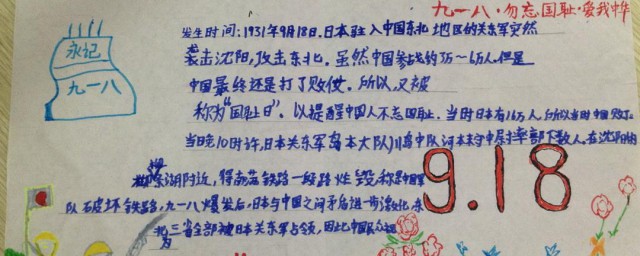 九一八·勿忘国耻·爱我中华
永记
九一八
发生时间：1931年9月18日，日本驻入中国东北地区的关东军突然
袭击沈阳，攻击东北。虽然中国参战约万~6万人，但是
中国最终还是打了败仗。所以，又被
称为“国耻日”，以提醒中国人不忘国耻。当时日本有16万人，所以当时中国败了。
当晚10时许，日本关东军岛本大队川岛中队河本末守中尉率部下数人，在沈阳
湖附近，将南满铁路一段路炸毁，称是中国军
队破坏铁路，九一八爆发后，日本与中国之间矛盾进一步激化，东
北三省全部被日本关东军占领，因此中国民众
为
9.18